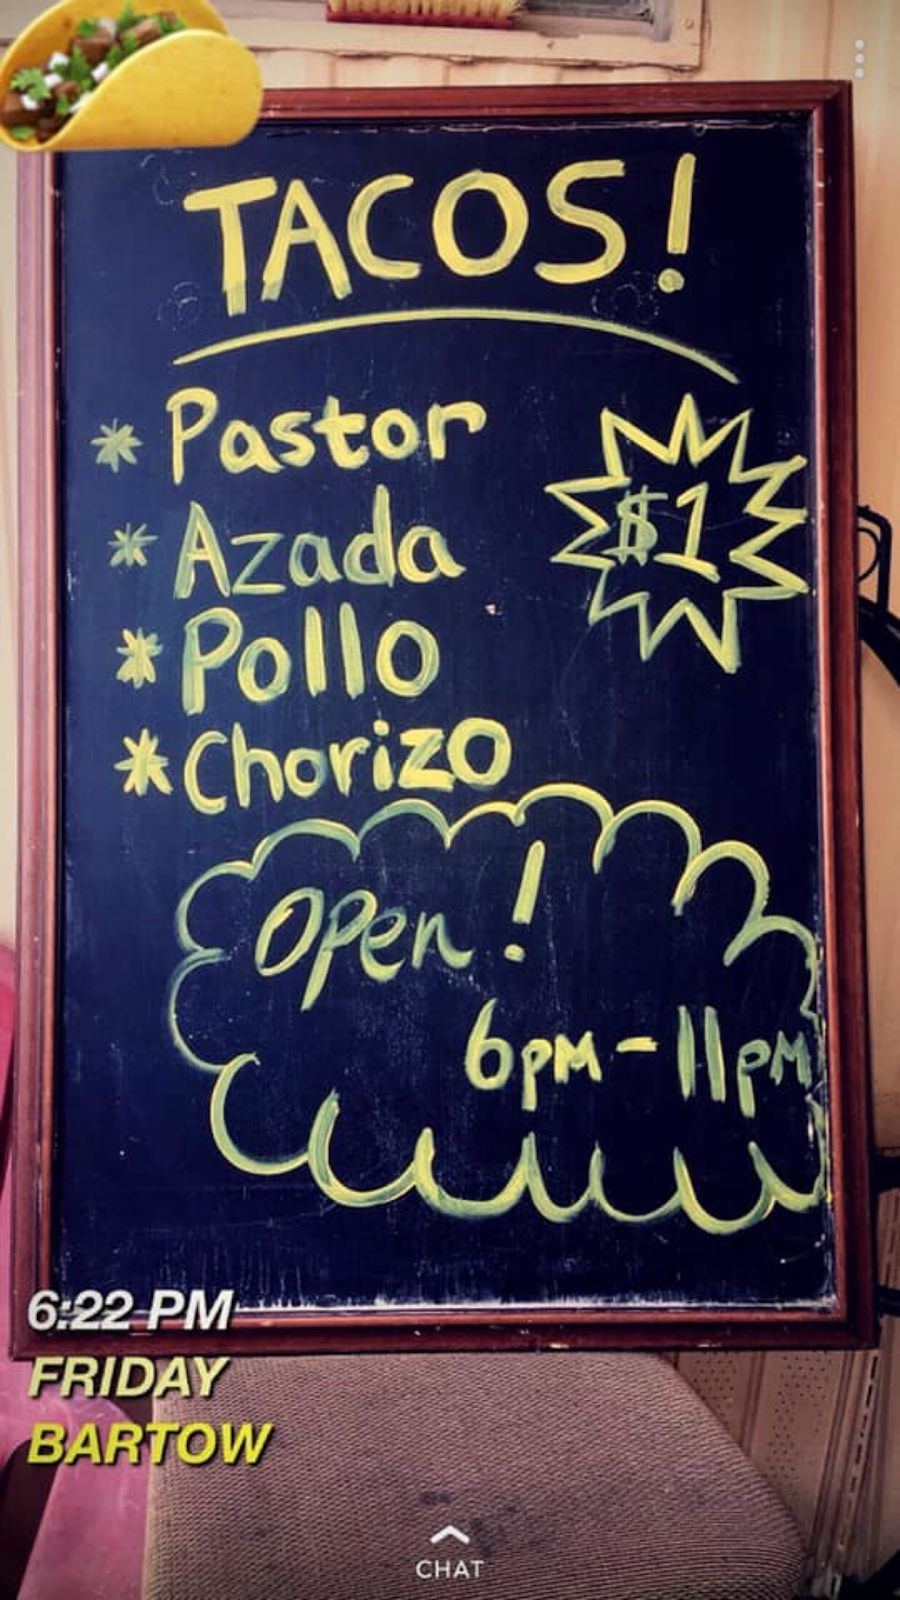 TACOS!
* Pastor
* Azada
$1
* Pollo
* Chorizo
Open!
6pm-11pm
6:22 PM
FRIDAY
BARTOW
CHAT